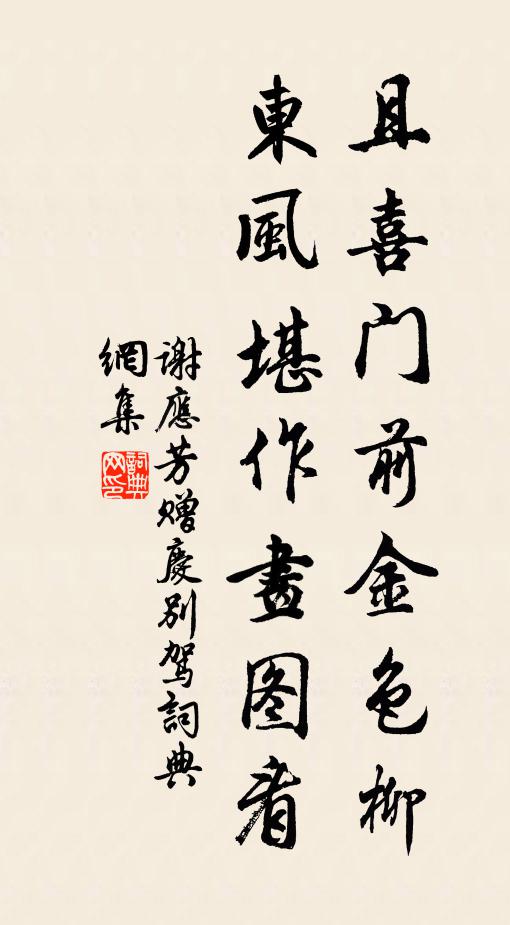 且喜门前金色柳
東風堪作畫图看
谢應芳赠慶别驾詞典
網集
詞典網印